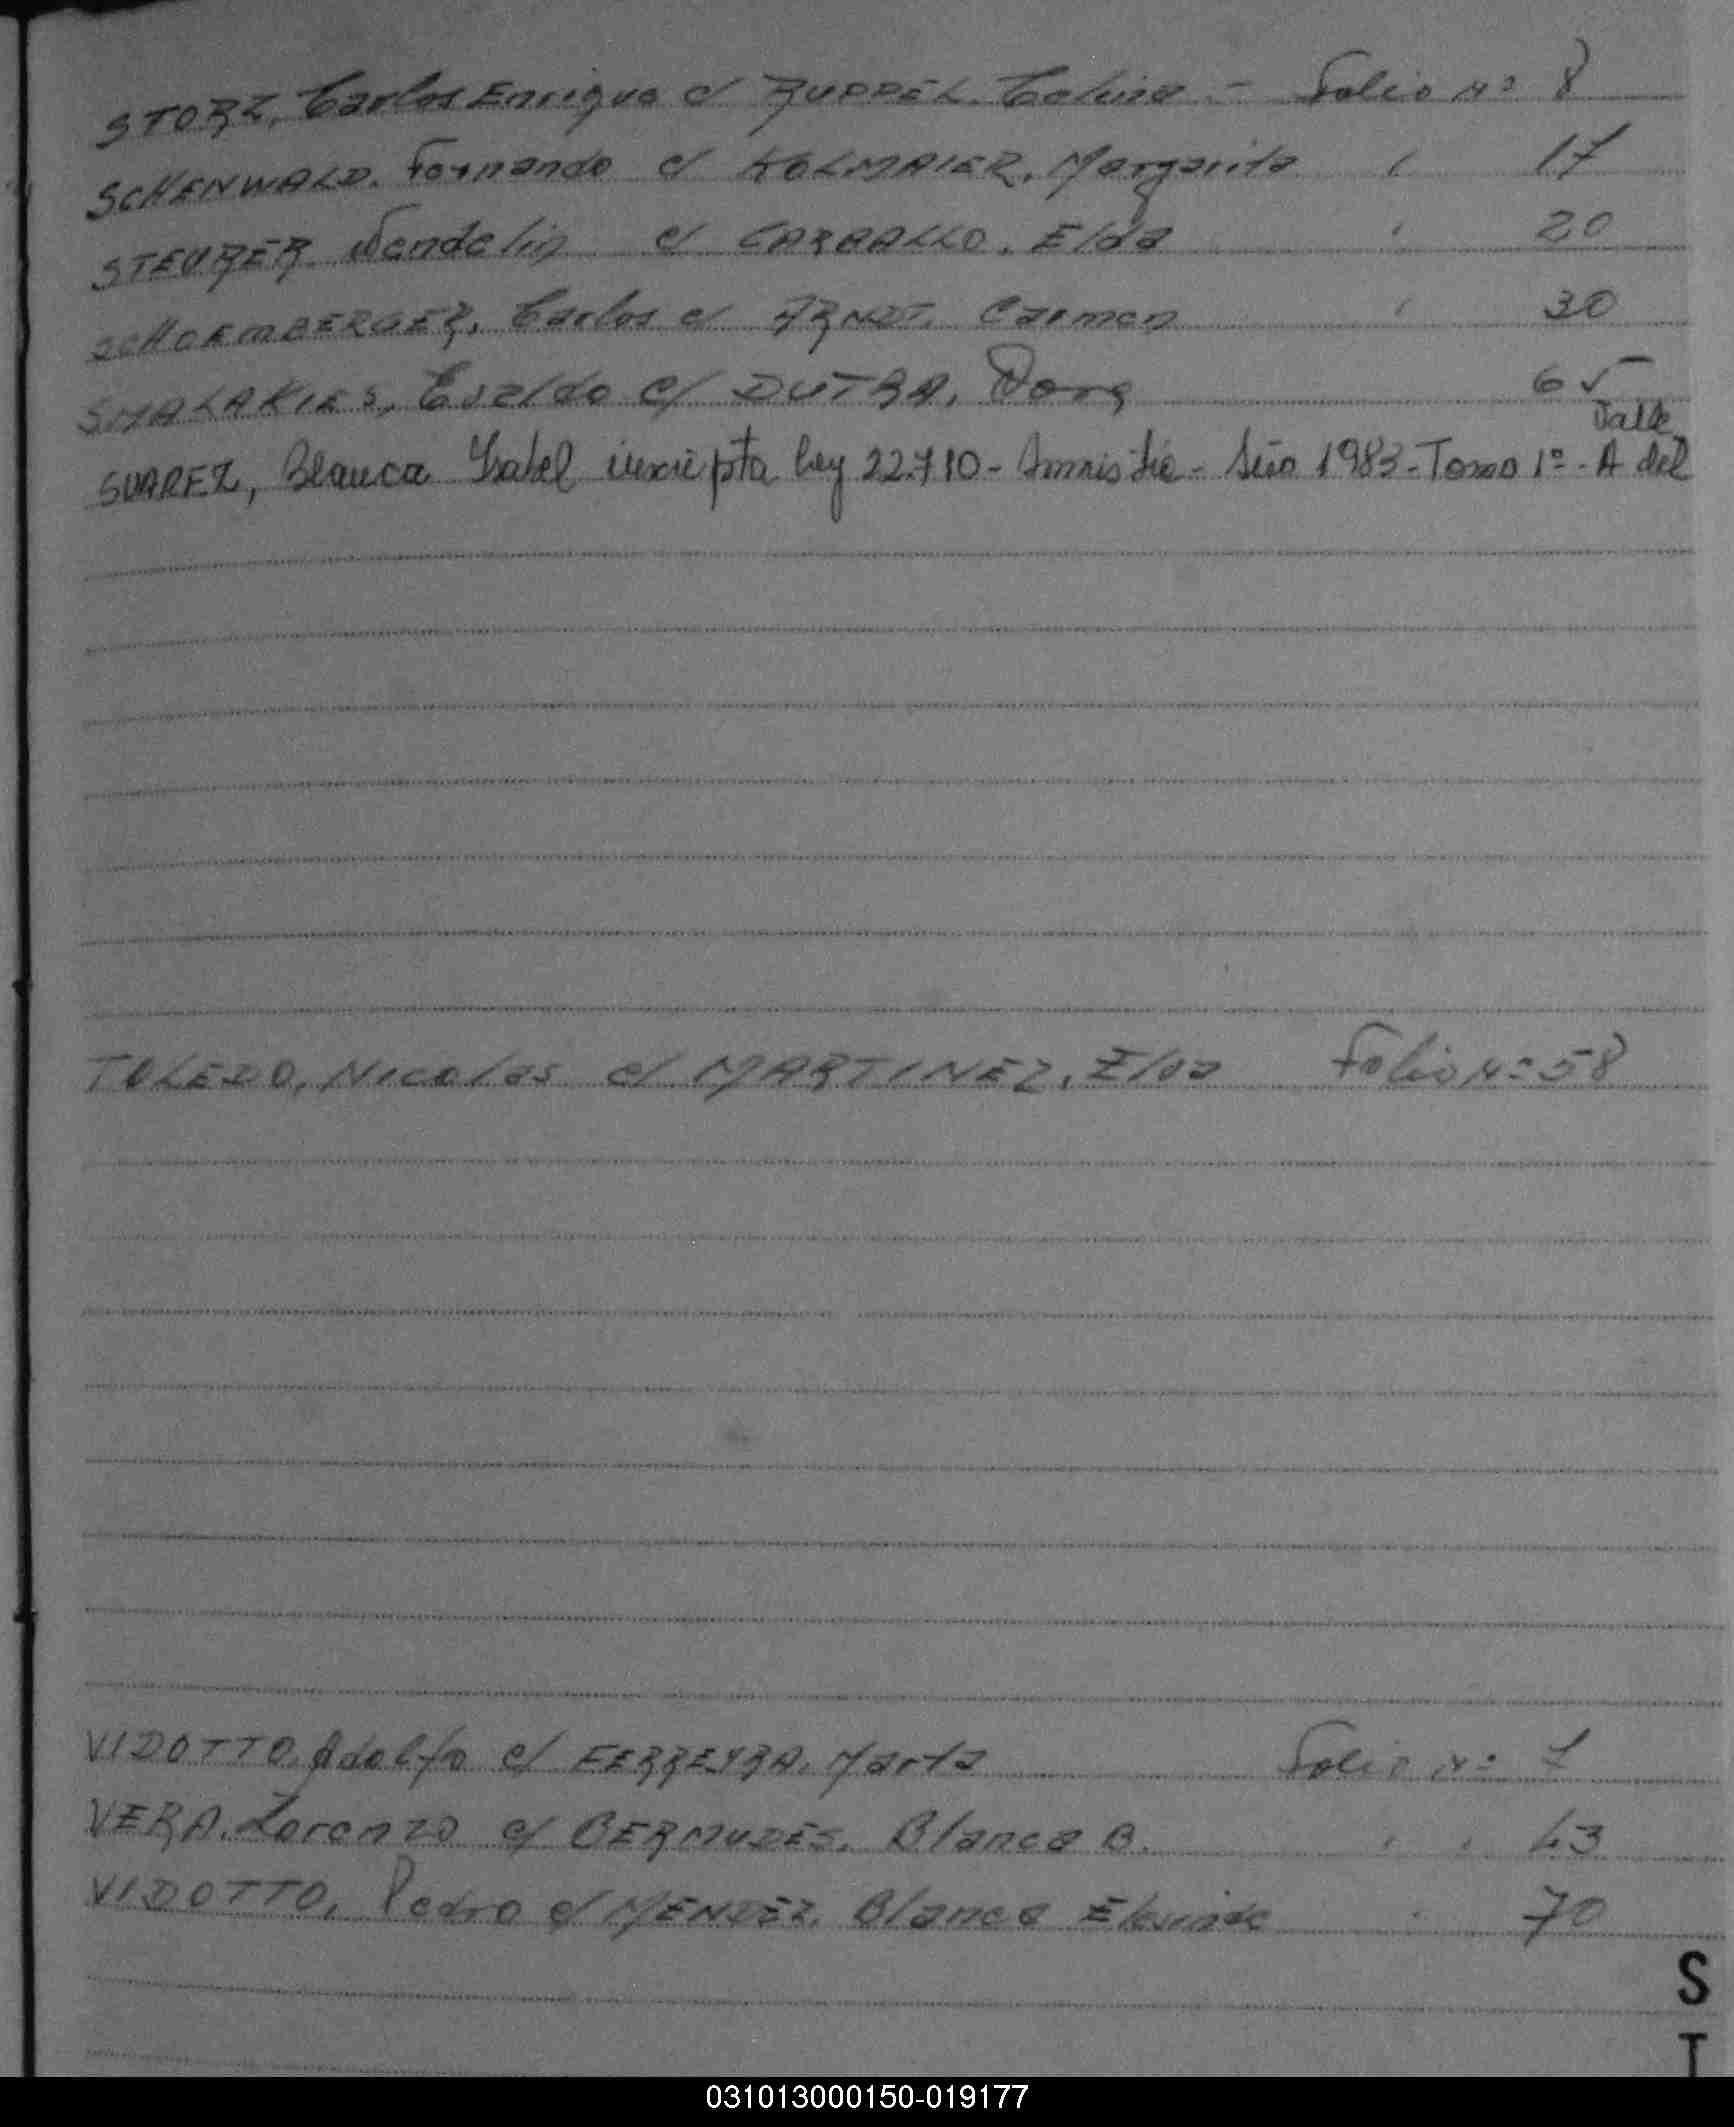 STORZ, Carlos Enrique c/ RUPPEL, Celina - Folio Nº 8
SCHENWALD, Fernando c/ KOLMAIER, Margarita " 17
STEURER Wendelin c/ CARBALLO, Elda " 20
SCHOEMBERGER, Carlos c/ ARNDT, Carmen " 30
SMALAKIES, Evaldo c/ DUTRA, Dora 65
Valle
SUAREZ, Blanca Ysabel inscripta ley 22.710 - Amnistia - Año 1983 - Tomo 1º - A del
TOLEDO, Nicolas c/ MARTINEZ, Elsa Folio Nº 58
VIDOTTO, Adolfo c/ FERREYRA, Marta Folio Nº 7
VERA, Lorenzo c/ BERMUDES, Blanca B. " " 43
VIDOTTO, Pedro c/ MENDEZ, Blanca " 70
S
T
031013000150-019177